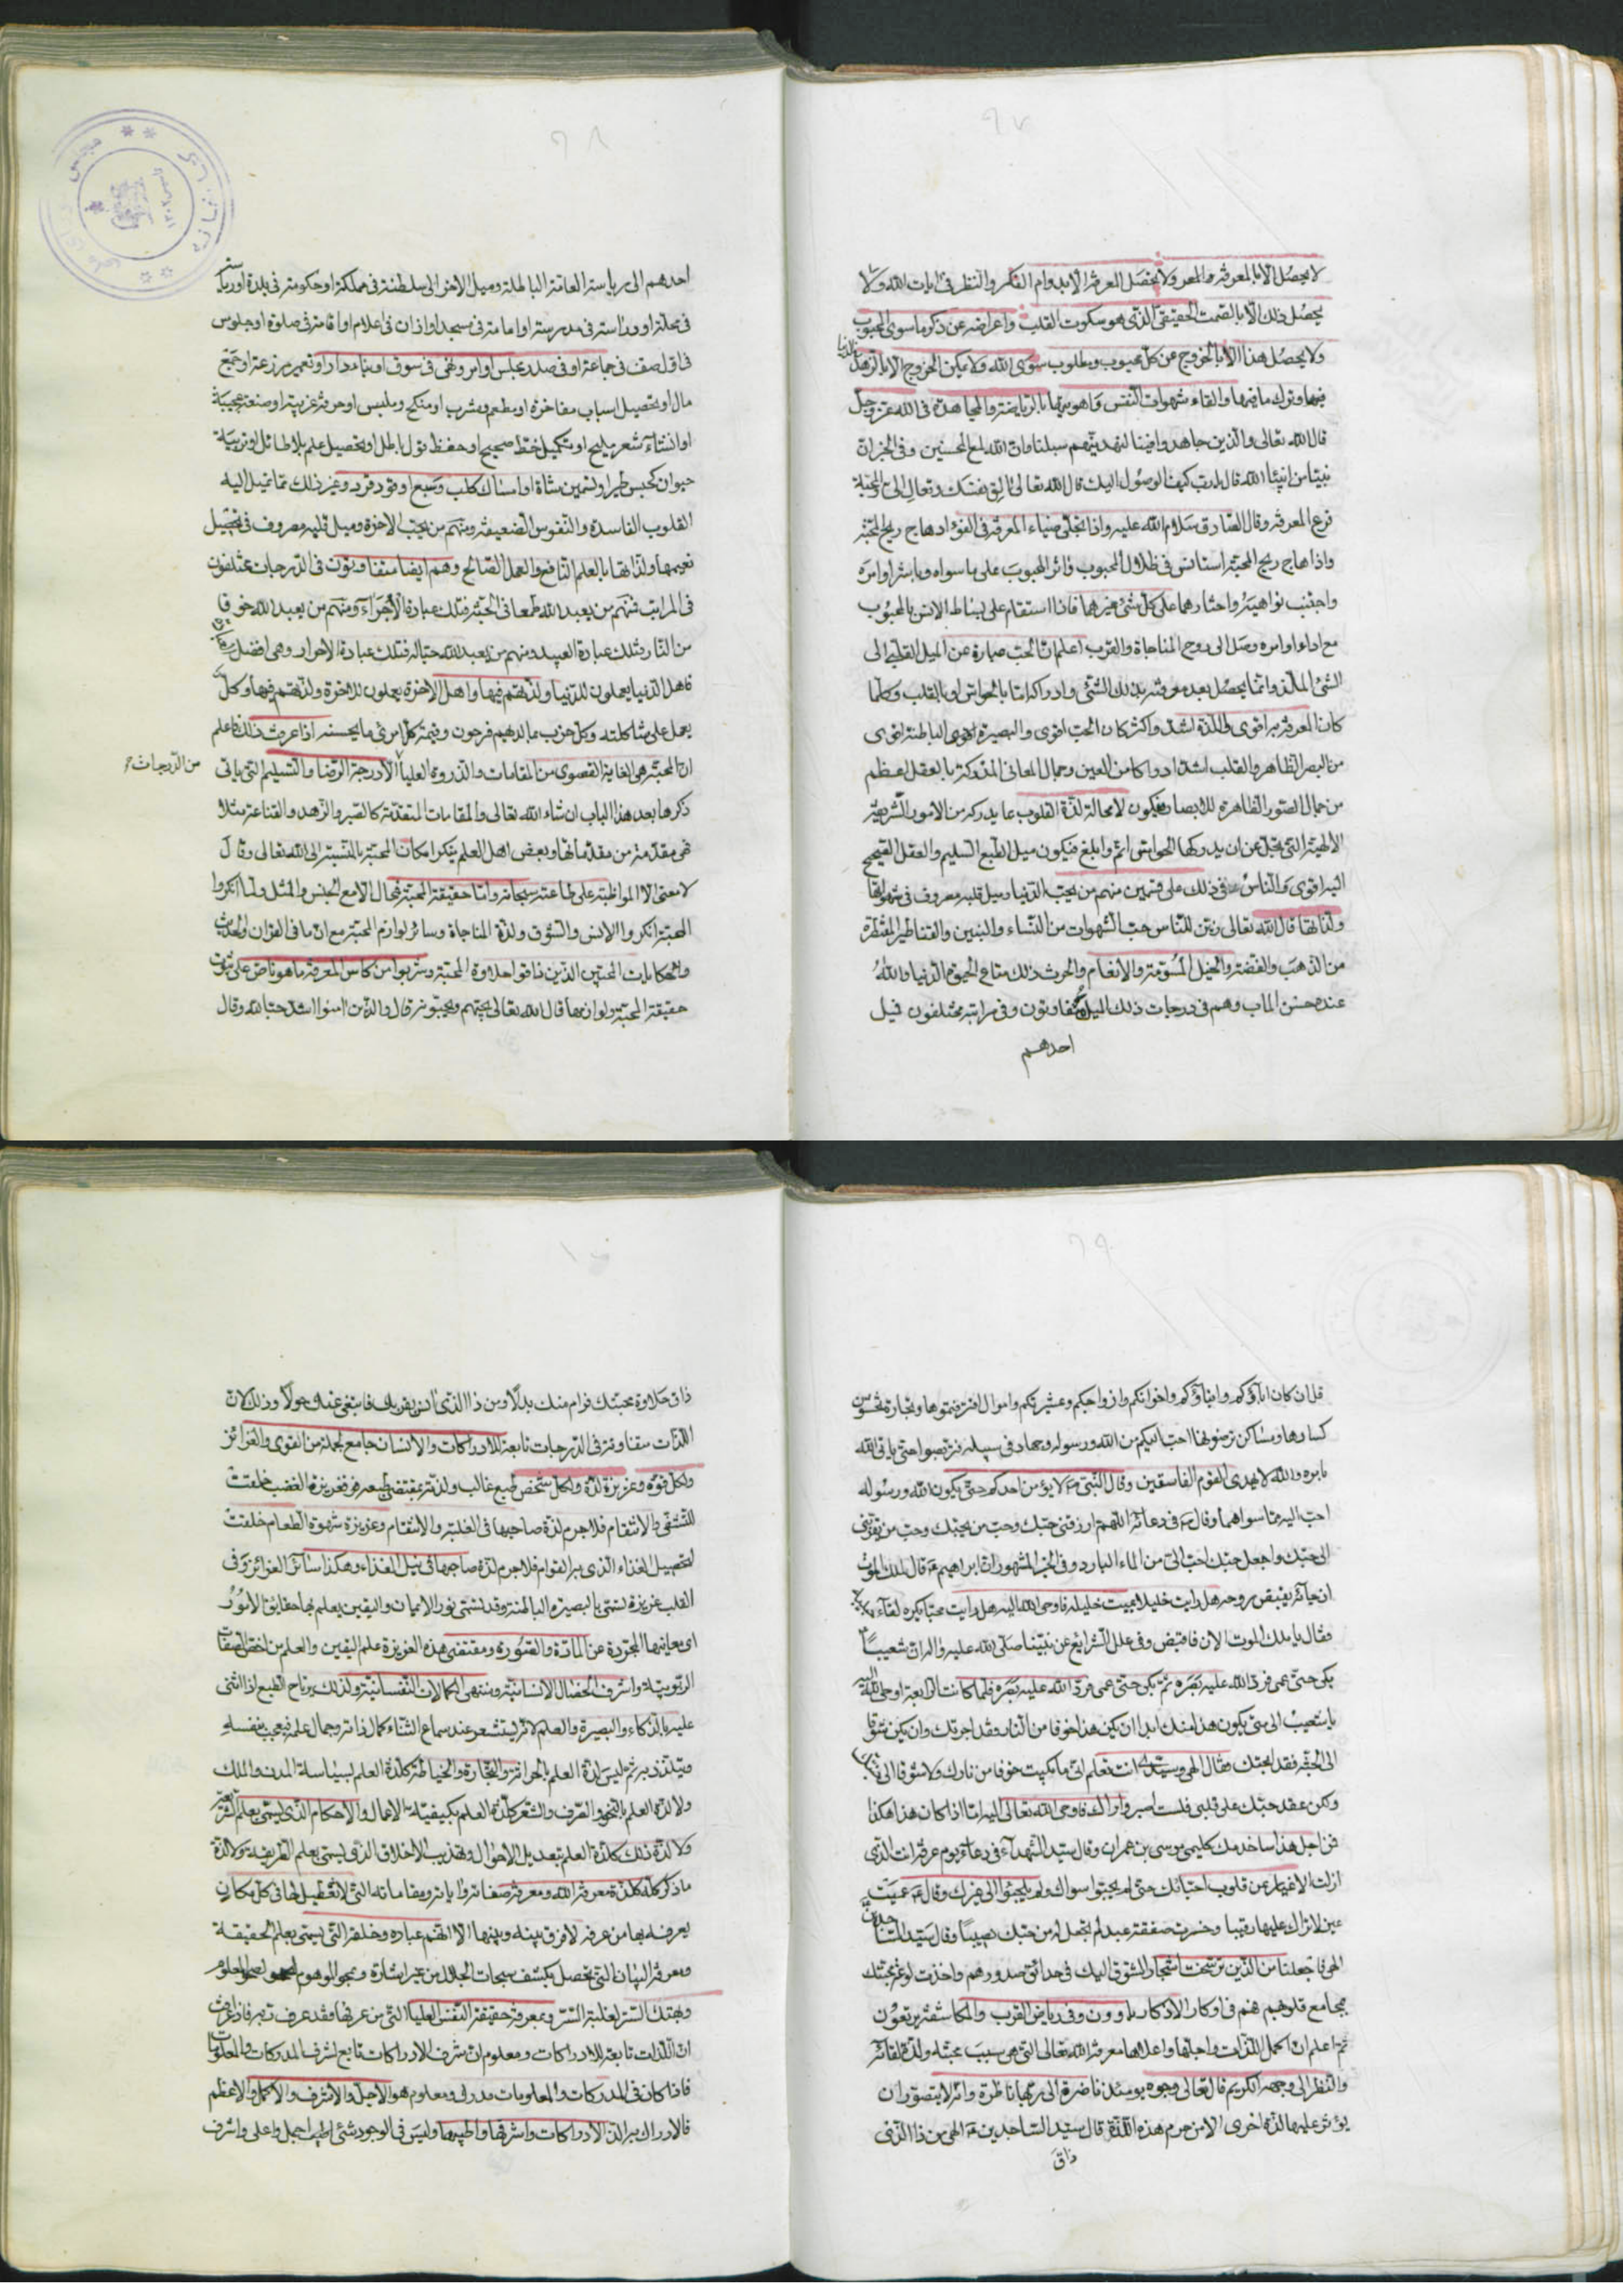 لا يحصل الا بالمعرفة والمعرو ولا يحصل المعرفة الا بدوام الفكر والنظر فى ايات الله ولا
يحصل ذلك الا بالصمت الحقيقى الذى هو سكوت القلب واعراضه عن ذكر ما سوى المحبوب
ولا يحصل هذا الا بالخروج عن كل محبوب ومطلوب سوى الله ولا يمكن الخروج الا بالزهد فى الدنيا
فيها وترك ما فيها والقاء شهوات النفس واهويتها بالرياضة والمجاهدة فى الله عز وجل
قال الله تعالى والذين جاهدوا فينا لنهدينهم سبلنا وان الله لمع المحسنين وفى الخبر ان
نبيا من انبياء الله قال يا رب كيف الوصول اليك قال الله تعالى الق نفسك وتعال الى والمحبة
فرع المعرفة وقال الصادق سلام الله عليه واذا تجلى ضياء المعرفة فى الفؤاد هاج ريح المحبة
واذا هاج ريح المحبة استانس فى ظلال المحبوب واثر المحبوب على ما سواه وباشر اوامره
واجتنب نواهيه واختارهما على كل شئ غيرهما فاذا استقام على بساط الانس بالمحبوب
مع اداء اوامره وصل الى روح المناجاة والقرب اعلم ان الحب عبارة عن الميل القلبى الى
الشئ الملذ وانما يحصل بعد معرفة ذلك الشئ وادراكه اما بالحواس او بالقلب وكلما
كان المعرفة به اقوى واللذة اشد واكثر كان الحب اقوى والبصيرة الباطنة اقوى
من البصر الظاهر والقلب اشد ادراكا من العين وجمال المعانى المدركة بالعقل اعظم
من جمال الصور الظاهرة للابصار فيكون لا محالة لذة القلوب بما يدركه من الامور الشريفة
الالهية التى تجل عن ان يدركها الحواس اتم وابلغ فيكون ميل الطبع السليم والعقل الصحيح
اليه اقوى والناس فى ذلك على قسمين منهم من يحب الدنيا وميل قلبه مصروف فى شهواتها
ولذاتها قال الله تعالى زين للناس حب الشهوات من النساء والبنين والقناطير المقنطرة
من الذهب والفضة والخيل المسومة والانعام والحرث ذلك متاع الحيوة الدنيا والله
عنده حسن الماب وهم فى درجات ذلك الميل متفاوتون وفى مراتبه مختلفون فيل
احدهم
احدهم الى رياسة العامة الباطلة وميل الاخر الى سلطنة فى مملكة او حكومة فى بلدة او رياسة
فى محلة او دراسة فى مدرسة او امامة فى مسجد او اذان فى اعلام او اقامة فى صلوة او جلوس
فى اول صف فى جماعة او فى صدر مجلس او امر ونهى فى سوق او بناء دار او تعمير مزرعة او جمع
مال او تحصيل اسباب مفاخرة او مطعم ومشرب او منكح وملبس او حرفة غريبة او صنعة عجيبة
او انشاء شعر مليح او تكميل خط صحيح او حفظ قول باطل او تحصيل علم بلا طائل او تربية
حيوان كحبس طير او تسمين شاة او امساك كلب وسبع او قود قرد وغير ذلك مما تميل اليه
القلوب الفاسدة والنفوس الضعيفة ومنهم من يحب الاخرة وميل قلبه مصروف فى تحصيل
نعيمها ولذاتها بالعلم النافع والعمل الصالح وهم ايضا متفاوتون فى الدرجات مختلفون
فى المراتب فمنهم من يعبد الله طمعا فى الجنة فتلك عبادة الاجراء ومنهم من يعبد الله خوفا
من النار فتلك عبادة العبيد ومنهم من يعبد الله حبا له فتلك عبادة الاحرار وهى افضل
فاهل الدنيا يعملون للدنيا ولذتهم فيها واهل الاخرة يعملون للاخرة ولذتهم فيها وكل
يعمل على شاكلته وكل حزب بما لديهم فرحون وقيمة كل امرئ ما يحسنه اذا عرفت ذلك فاعلم
ان المحبة هى الغاية القصوى من المقامات والذروة العليا الا درجة الرضا والتسليم التى ياتى
من الدرجات
ذكرها بعد هذا الباب ان شاء الله تعالى والمقامات المتقدمة كالصبر والزهد والقناعة مثلا
فهى مقدمة من مقدماتها وبعض اهل العلم ينكر امكان المحبة بالنسبة الى الله تعالى وقال
لا معنى الا المواظبة على طاعته سبحانه واما حقيقة المحبة فمحال الا مع الجنس والمثل ولما انكروا
المحبة انكروا الانس والشوق ولذة المناجاة وسائر لوازم المحبة مع ان ما فى القران والحديث
وحكايات المحبين الذين ذاقوا حلاوة المحبة وشربوا من كاس المعرفة ما هو ناص على ثبوت
حقيقة المحبة ولوازمها قال الله تعالى يحبهم ويحبونه قال والذين امنوا اشد حبا لله وقال
قل ان كان اباؤكم وابناؤكم واخوانكم وازواجكم وعشيرتكم واموال اقترفتموها وتجارة تخشون
كسادها ومساكن ترضونها احب اليكم من الله ورسوله وجهاد فى سبيله فتربصوا حتى ياتى الله
بامره والله لا يهدى القوم الفاسقين وقال النبى لا يؤمن احدكم حتى يكون الله ورسوله
احب اليه مما سواهما وقال فى دعائه اللهم ارزقنى حبك وحب من يحبك وحب من يقربنى
الى حبك واجعل حبك احب الى من الماء البارد وفى الخبر المشهور ان ابراهيم قال لملك الموت
اذ جاءه ليقبض روحه هل رايت خليلا يميت خليله فاوحى الله اليه هل رايت محبا يكره لقاء حبيبه
فقال يا ملك الموت الان فاقبض وفى علل الشرايع عن نبينا صلى الله عليه واله ان شعيبا
بكى حتى عمى فرد الله عليه بصره ثم بكى حتى عمى فرد الله عليه بصره فلما كانت الرابعة اوحى الله اليه
يا شعيب الى متى يكون هذا منك ابدا ان يكن هذا خوفا من النار فقد اجرتك وان يكن شوقا
الى الجنة فقد ابحتك فقال الهى وسيدى انت تعلم انى ما بكيت خوفا من نارك ولا شوقا الى جنتك
ولكن عقد حبك على قلبى فلست اصبر او اراك فاوحى الله تعالى اليه اما اذا كان هذا هكذا
فمن اجل هذا ساخدمك كليمى موسى بن عمران وقال سيد الشهداء فى دعاء يوم عرفة انت الذى
ازلت الاغيار عن قلوب احبائك حتى لم يحبوا سواك ولم يلجئوا الى غيرك وقال عميت
عين لا تراك عليها رقيبا وخسرت صفقة عبد لم تجعل له من حبك نصيبا وقال سيد الساجدين
الهى فاجعلنا من الذين ترسخت اشجار الشوق اليك فى حدائق صدورهم واخذت لوعة محبتك
بمجامع قلوبهم فهم فى اوكار الاذكار ياوون وفى رياض القرب والمكاشفة يرتعون
ثم اعلم ان اكمل اللذات واجلها واعلاها معرفة الله تعالى التى هى سبب محبته ولذة لقائه
والنظر الى وجهه الكريم قال تعالى وجوه يومئذ ناضرة الى ربها ناظرة وانه لا يتصور ان
يؤثر عليها لذة اخرى الا من حرم هذه اللذة قال سيد الساجدين الهى من ذا الذى
ذاق
ذاق حلاوة محبتك فرام منك بدلا ومن ذا الذى انس بقربك فابتغى عنك حولا وذلك لان
اللذات متفاوتة فى الدرجات تابعة للادراكات والانسان جامع لجملة من القوى والغرائز
ولكل قوة وغريزة لذة ولكل شخص طبع غالب ولذته بمقتضى طبعه فغريزة الغضب خلقت
للتشفى والانتقام فلا جرم لذة صاحبها فى الغلبة والانتقام وغريزة شهوة الطعام خلقت
لتحصيل الغذاء الذى به القوام فلا جرم لذة صاحبها فى نيل الغذاء وهكذا سائر الغرائز وفى
القلب غريزة تسمى بالبصيرة الباطنة وقد تسمى نور الايمان واليقين يعلم بها حقايق الامور
اى معانيها المجردة عن المادة والصورة ومقتضى هذه الغريزة علم اليقين والعلم من اخص الصفات
الربوبية واشرف الخصال الانسانية ومنتهى الكمالات النفسانية ولذلك يرتاح الطبع اذا اثنى
عليه بالذكاء والبصيرة والعلم لانه ليستشعر عند سماع الثناء كمال ذاته وجمال علمه فيعجب بنفسه
ويتلذذ به ثم ليس لذة العلم بالحراثة والتجارة والخياطة كلذة العلم بسياسة المدن والملك
ولا لذة العلم بالنحو والصرف والشعر كلذة العلم بكيفية الاعمال والاحكام الذى يسمى بعلم الشريعة
ولا لذة ذلك كلذة العلم بتعديل الاحوال وتهذيب الاخلاق الذى يسمى بعلم الطريقة ولا لذة
ما ذكر كله كلذة معرفة الله ومعرفة صفاته واياته ومقاماته التى لا تعطيل لها فى كل مكان
يعرفه بها من عرفه لا فرق بينه وبينها الا انهم عباده وخلقه التى يسمى بعلم الحقيقة
ومعرفة البيان التى تحصل بكشف سبحات الجلال من غير اشارة ومحو الموهوم وصحو المعلوم
وبهتك الستر لغلبة السر وبمعرفة حقيقة النفس العليا التى من عرفها فقد عرف ربه فاذا عرفت
ان اللذات تابعة للادراكات ومعلوم ان شرف الادراكات تابع لشرف المدركات والمعلومات
فاذا كان فى المدركات والمعلومات مدرك ومعلوم هو الاجل والاشرف والاكمل والاعظم
فالادراك به الذ الادراكات واشرفها واطيبها وليس فى الوجود شئ اطيب اجمل واعلى واشرف